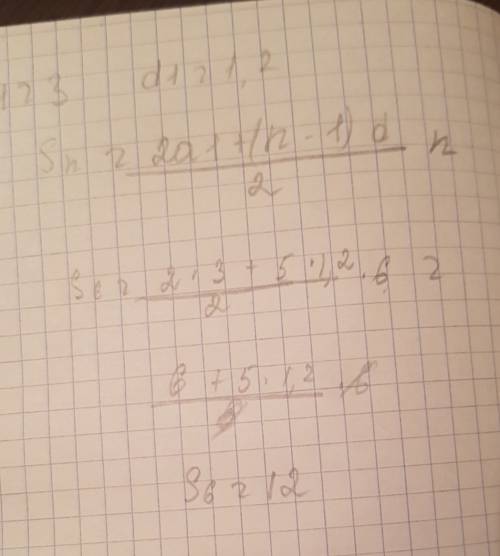 1 = 3 d1 = 1,2
Sn = 2a1 + (n - 1) d / 2 n
S6 = 2 · 3 + 5 · 1,2 / 2 · 6 =
6 + 5 · 1,2 / · 6
S6 = 12